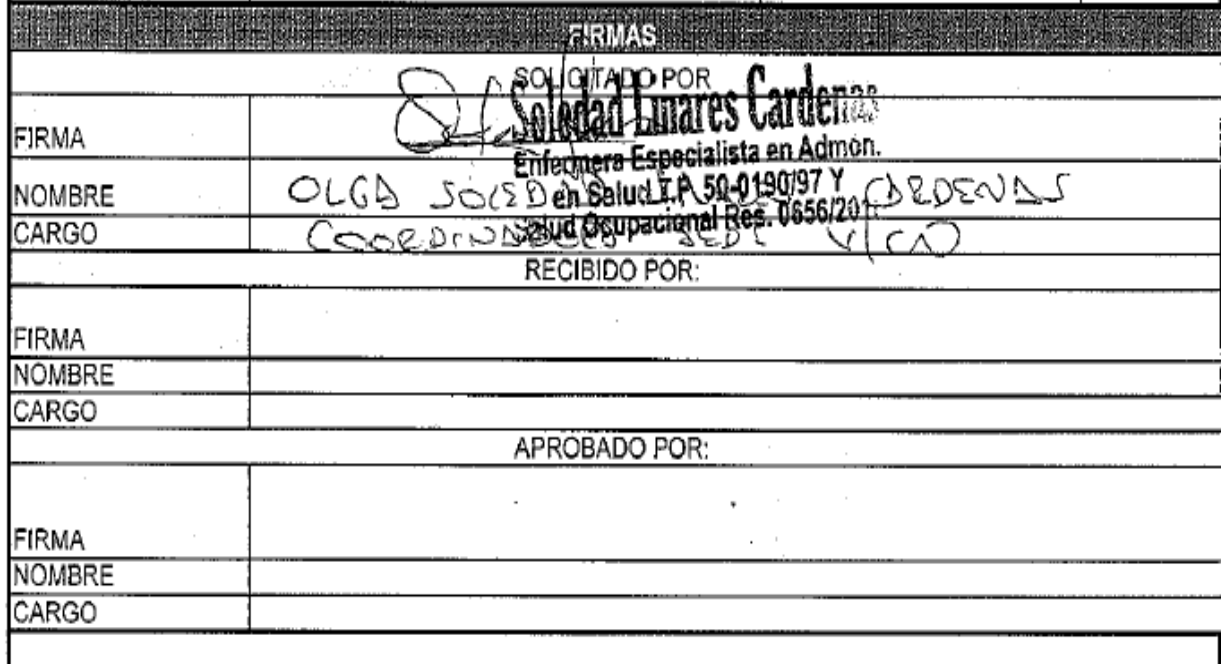 FIRMAS
SOLICITADO POR
Soledad Linares Cardenas
Enfermera Especialista en Admon.
en Salud T.P. 50-0190/97 Y
Salud Ocupacional Res. 0656/201
FIRMA
NOMBRE OLGA SOLEDAD CARDENAS
CARGO COORDINADORA SEDE V/CIO
RECIBIDO POR:
FIRMA
NOMBRE
CARGO
APROBADO POR:
FIRMA
NOMBRE
CARGO